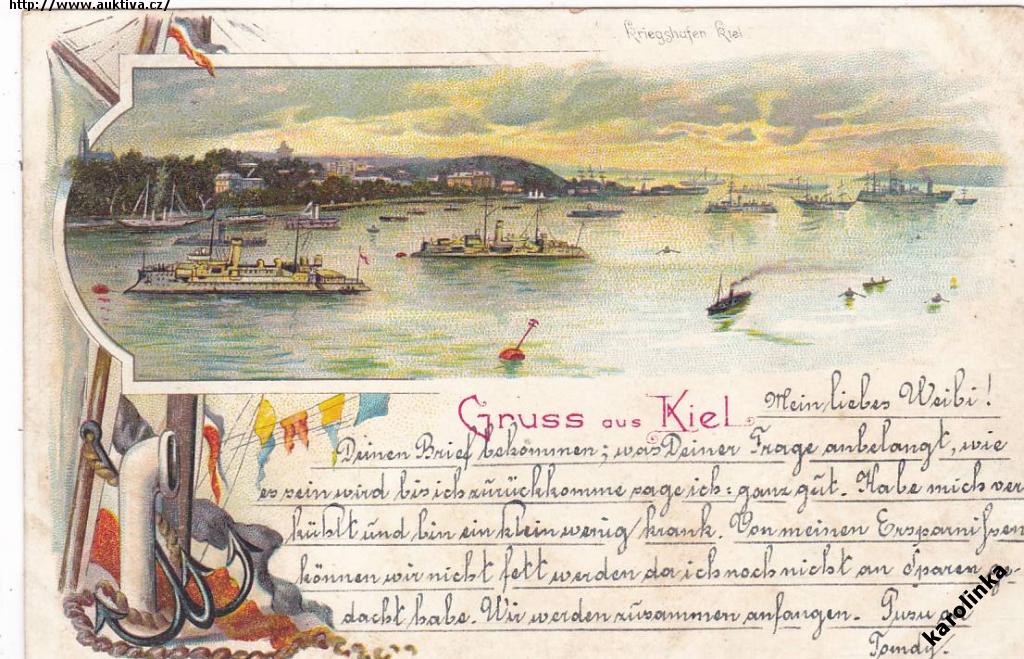 http://www.auktiva.cz/
Kriegshafen Kiel
Gruss aus Kiel
Mein liebes Weibi!
Deinen Brief bekommen; was Deiner Frage anbelangt, wie
es sein wird bis ich zurückkomme sage ich: ganz gut. Habe mich ver
kühlt und bin ein klein wenig krank. Von meinen Ersparnissen
können wir nicht fett werden da ich noch nicht an Sparen ge-
dacht habe. Wir werden zusammen anfangen. Pusu
karolinka